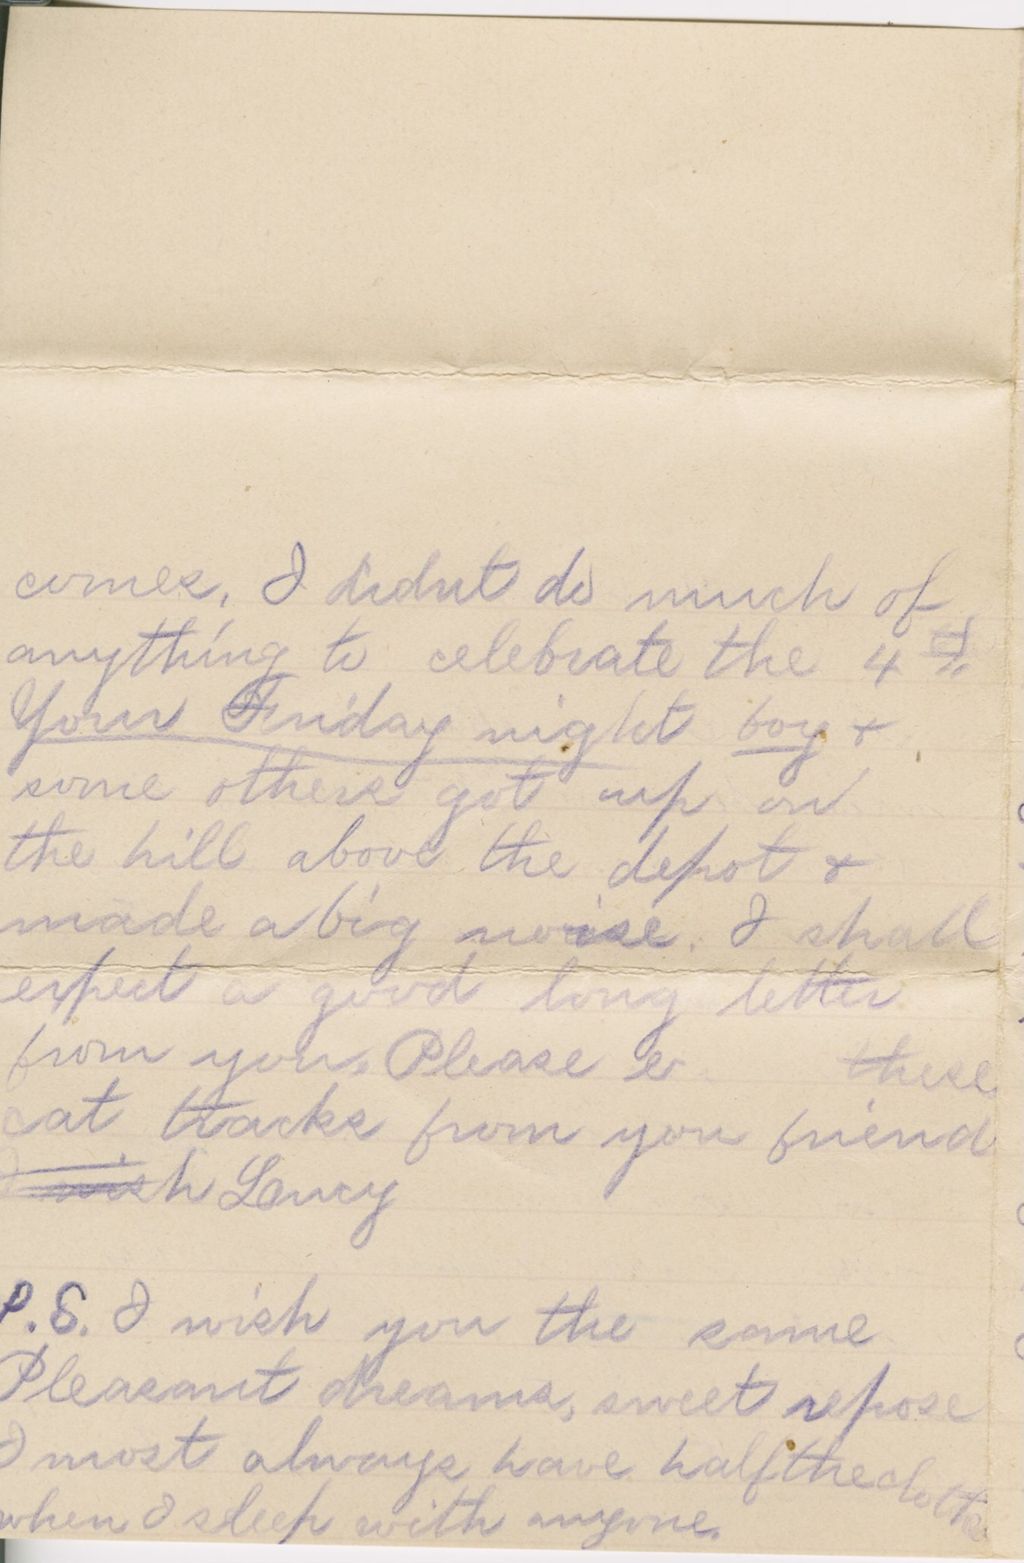 comes, I didnt do much of
anything to celebrate the 4th
Your Friday night boy &
some others got up on
the hill above the depot &
made a big noise. I shall
expect a good long letter
from you. Please these
cat tracks from you friend
I wish Lucy
P.S. I wish you the same
Pleasant dreams, sweet repose
I most always have half the clothes
when I sleep with anyone.